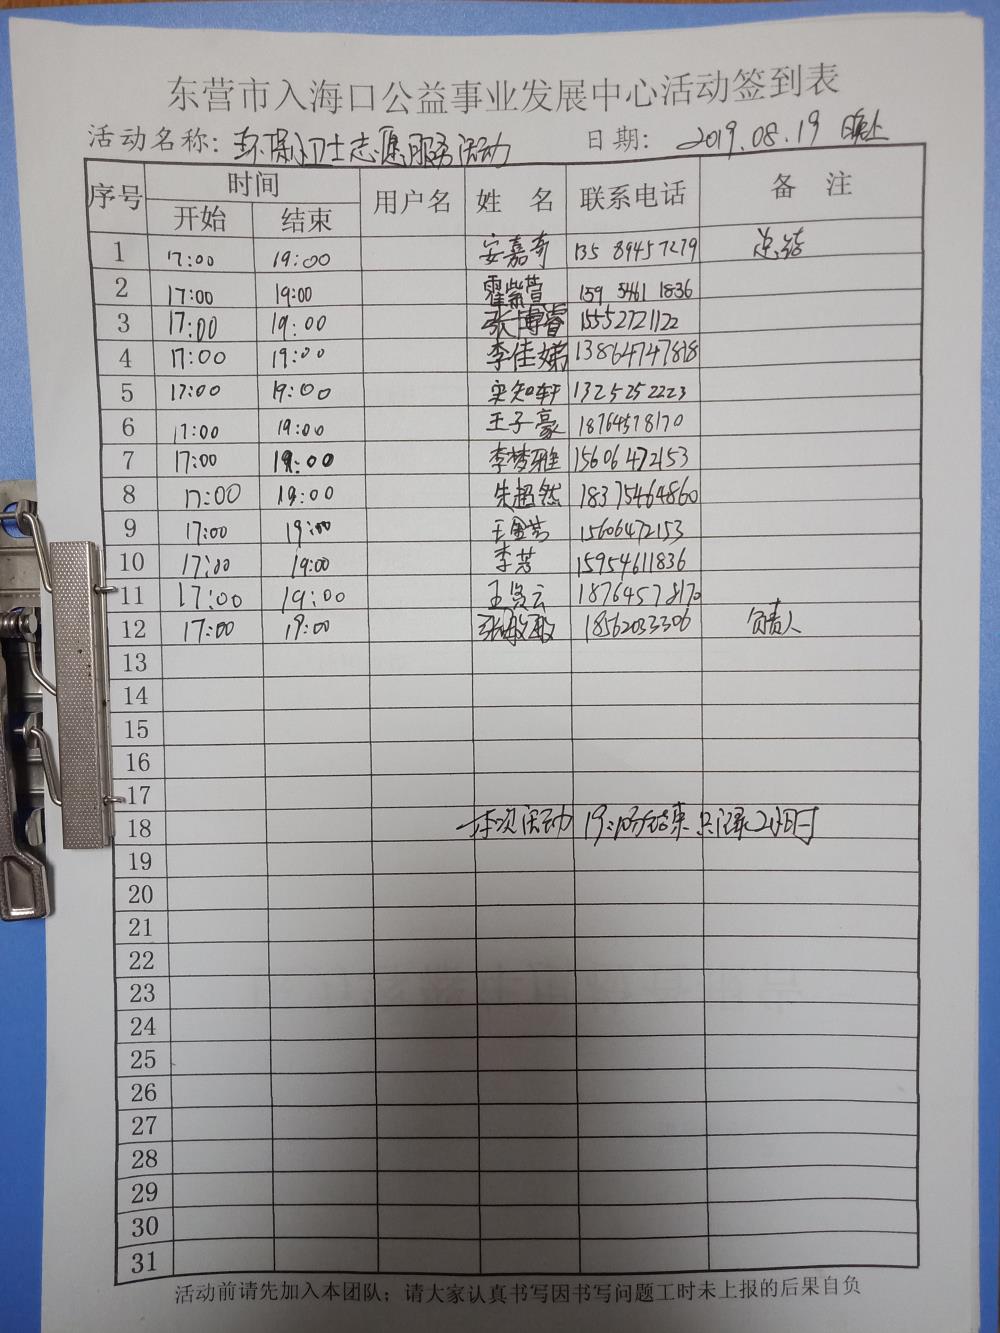 东营市入海口公益事业发展中心活动签到表
活动名称: 环保卫士志愿服务活动 日期: 2019.08.19 晚上
序号 时间 用户名 姓 名 联系电话 备 注
开始 结束
1 17:00 19:00 安嘉奇 135 8945 7279 总结
2 17:00 19:00 霍紫萱 159 5461 1836
3 17:00 19:00 张博睿 15552721122
4 17:00 19:00 李佳娣 13864747818
5 17:00 19:00 梁知轩 13252522223
6 17:00 19:00 王子豪 18764578170
7 17:00 19:00 李梦雅 15606472153
8 17:00 19:00 朱超然 18375464860
9 17:00 19:00 15606472153
10 17:00 19:00 李芳 15954611836
11 17:00 19:00 18764578170
12 17:00 19:00 张敏敏 18562033306 负责人
13
14
15
16
17
18 本次活动 结束 只记录2小时
19
20
21
22
23
24
25
26
27
28
29
30
31
活动前请先加入本团队;请大家认真书写因书写问题工时未上报的后果自负